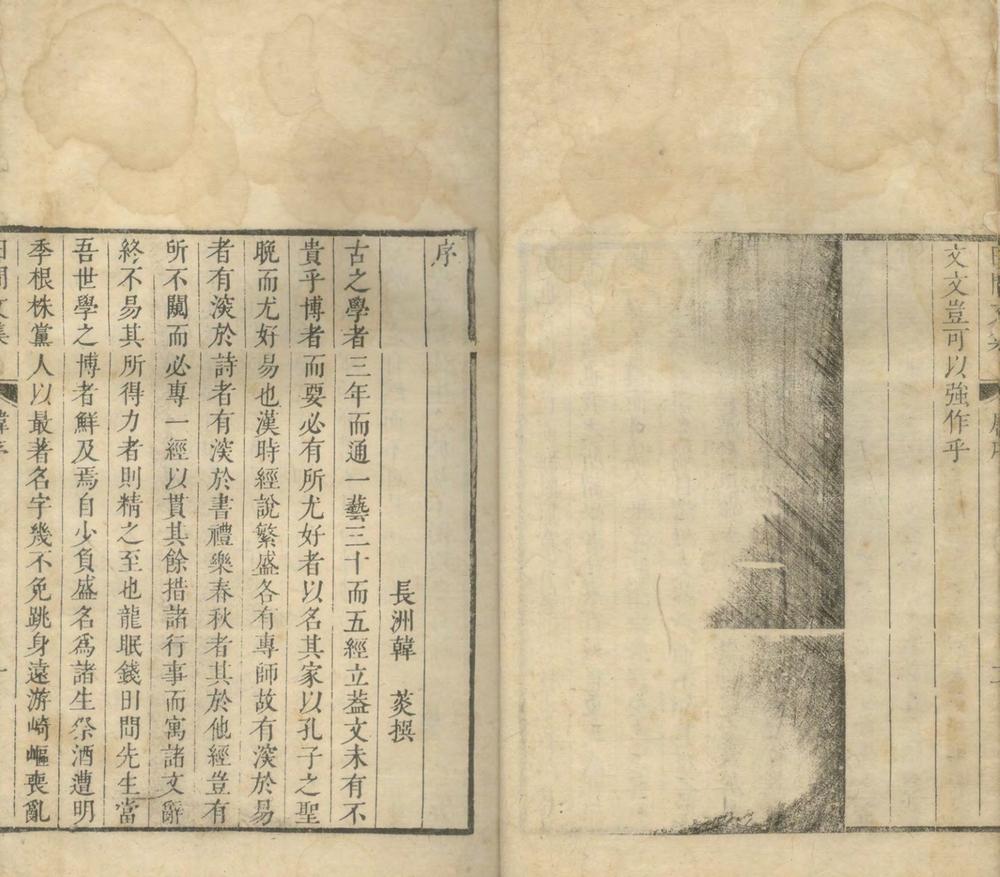 文文豈可以強作乎
序
長洲韓　菼撰
古之學者三年而通一藝三十而五經立葢文未有不
貴乎博者而要必有所尤好者以名其家以孔子之聖
晚而尤好易也漢時經說繁盛各有專師故有湥於易
者有湥於詩者有湥於書禮樂春秋者其於他經豈有
所不闚而必專一經以貫其餘措諸行事而寓諸文辭
終不易其所得力者則精之至也龍眠錢田間先生當
吾世學之博者鮮及焉自少負盛名爲諸生祭酒遭明
季根株黨人以最著名字幾不免跳身遠游崎嶇喪亂
田間文集
韓序
一